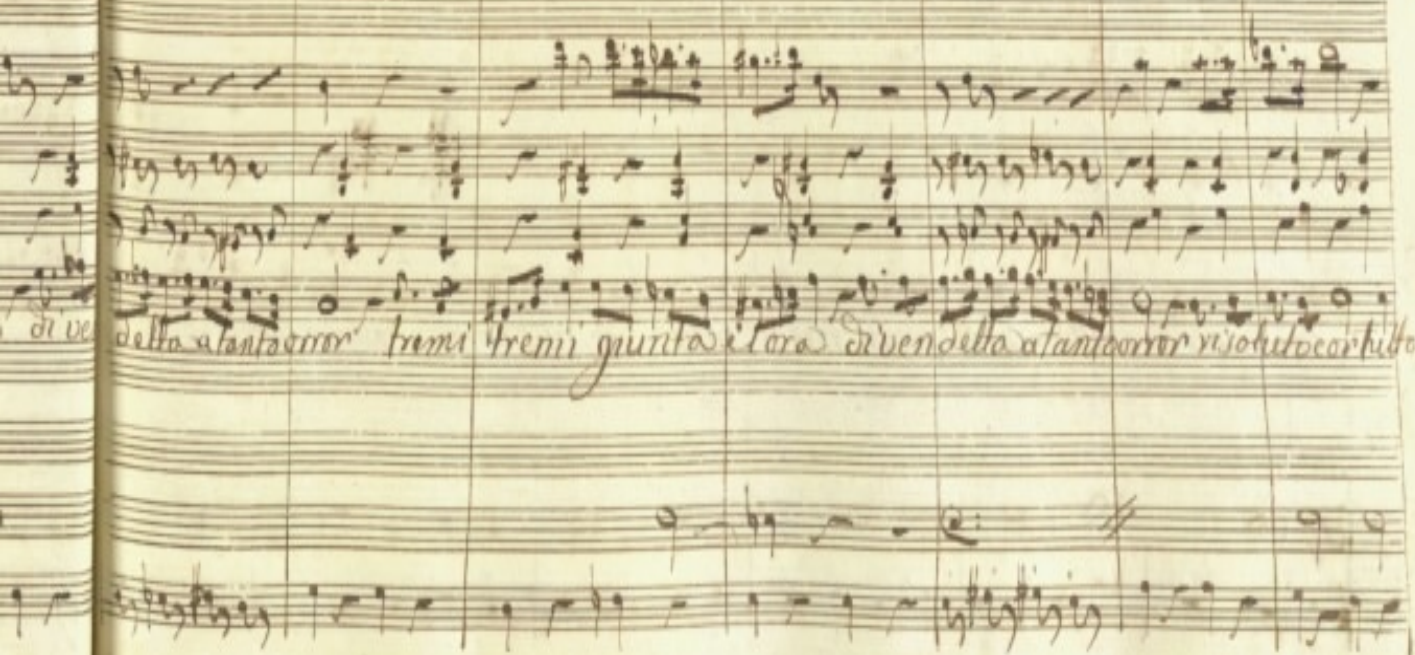 di ven detta a tanto orror tremi tremi giunta è l'ora di ven detta a tanto orror risoluto cor tutto